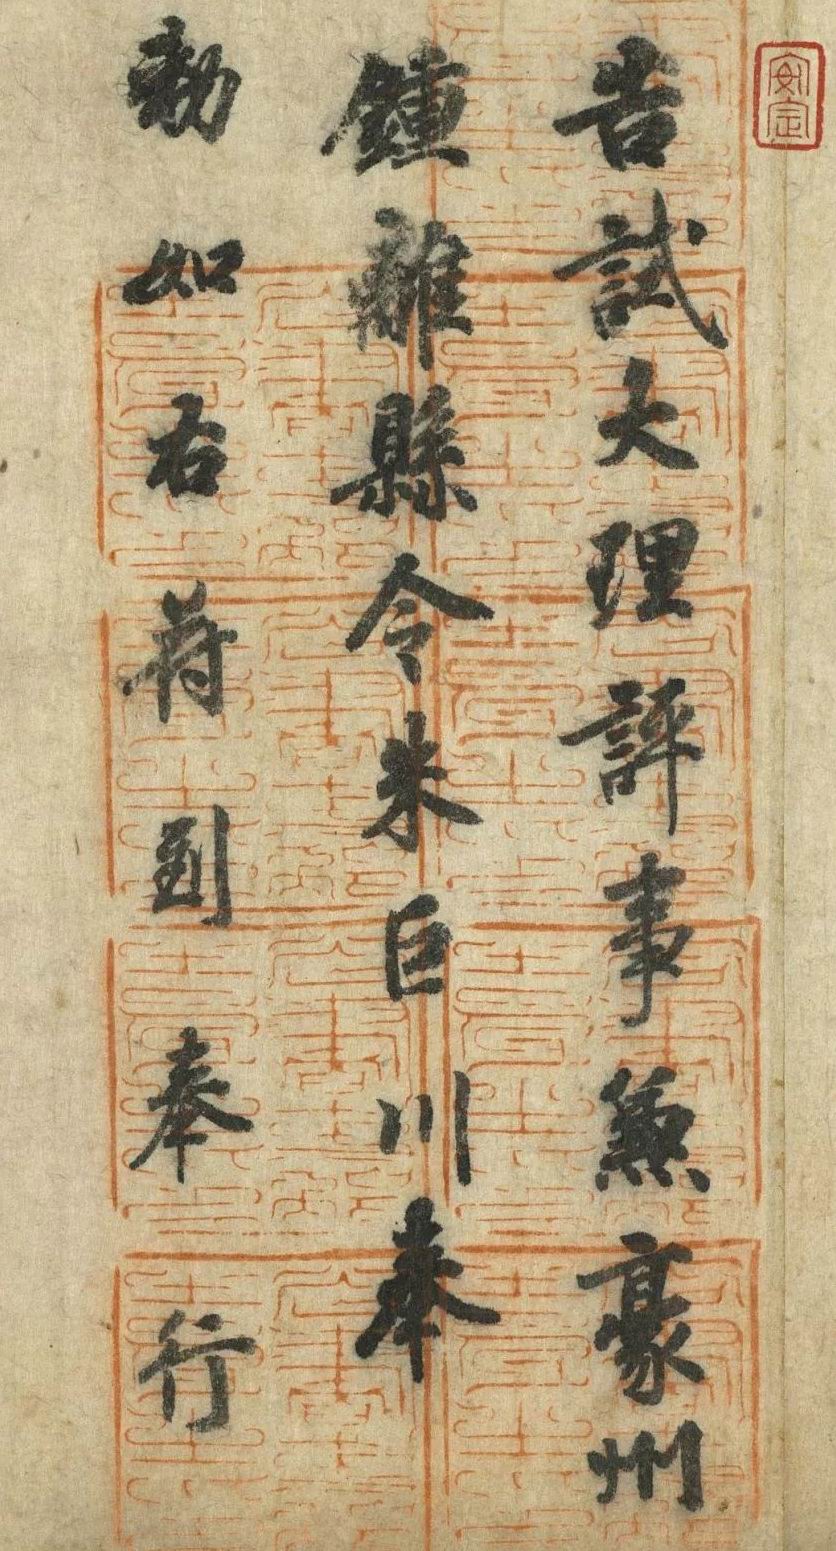 告試大理評事兼豪州
鍾離縣令朱巨川奉
勅如右符到奉行
安定